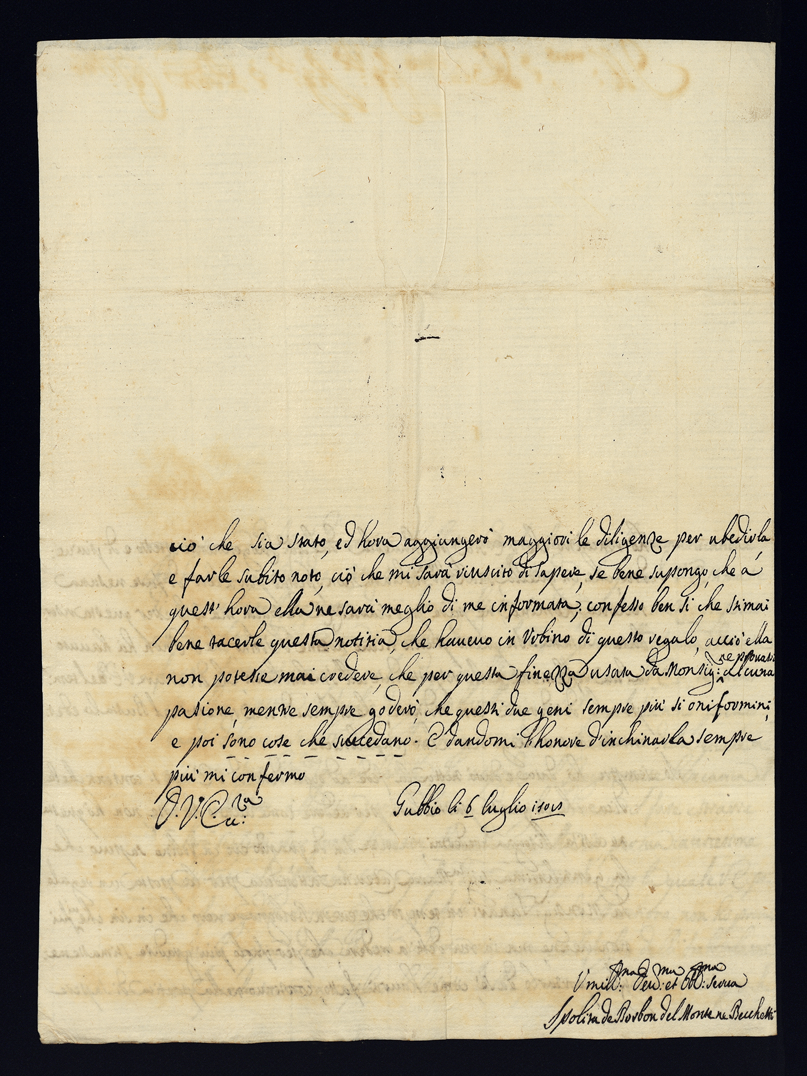 ciò che sia stato, ed hora aggiungerò maggiori le diligenze per ubedirla
e farle subito noto, ciò che mi sarà riuscito di sapere, se bene supongo, che à
quest' hora ella ne sarà meglio di me informata; confesso ben si che stimai
bene tacerle questa notitia, che haueuo in Vrbino di questo regalo, acciò ella
non potesse mai credere, che per questa finezza usata da Monsig.re ne prouassi alcuna
pasione, mentre sempre goderò, che questi due geni sempre più si oniformini,
e poi sono cose che succedano. E dandomi l'honore d'inchinarla sempre
più mi confermo
D. V. Ecc.za
Gubbio li 6 luglio
Vmill.ma Deu.ma et Obl.ma Serua
Ipolita de Borbon del Monte ne Becchetti